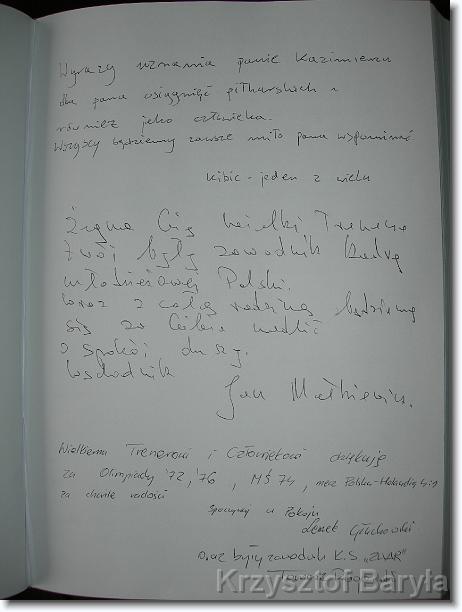 Wyrazy uznania panie Kazimierzu
dla pana osiągnięć piłkarskich i
również jako człowieka.
Wszyscy będziemy zawsze miło pana wspominać
Kibic - jeden z wielu
Żegna Cię wielki Trenerze
Twój były zawodnik Kadry
młodzieżowej Polski.
wraz z całą rodziną będziemy
się za Ciebie modlić
o spokój duszy.
Jan Małkiewicz.
Wielkiemu Trenerowi i Człowiekowi dziękuję
za Olimpiady '72, '76, MŚ 74, mecz Polska-Holandia 4:1
za chwile radości
Spoczywaj w Pokoju
Lenek Głuchowski
oraz były zawodnik K.S. „ZNAR"
Krzysztof Baryła